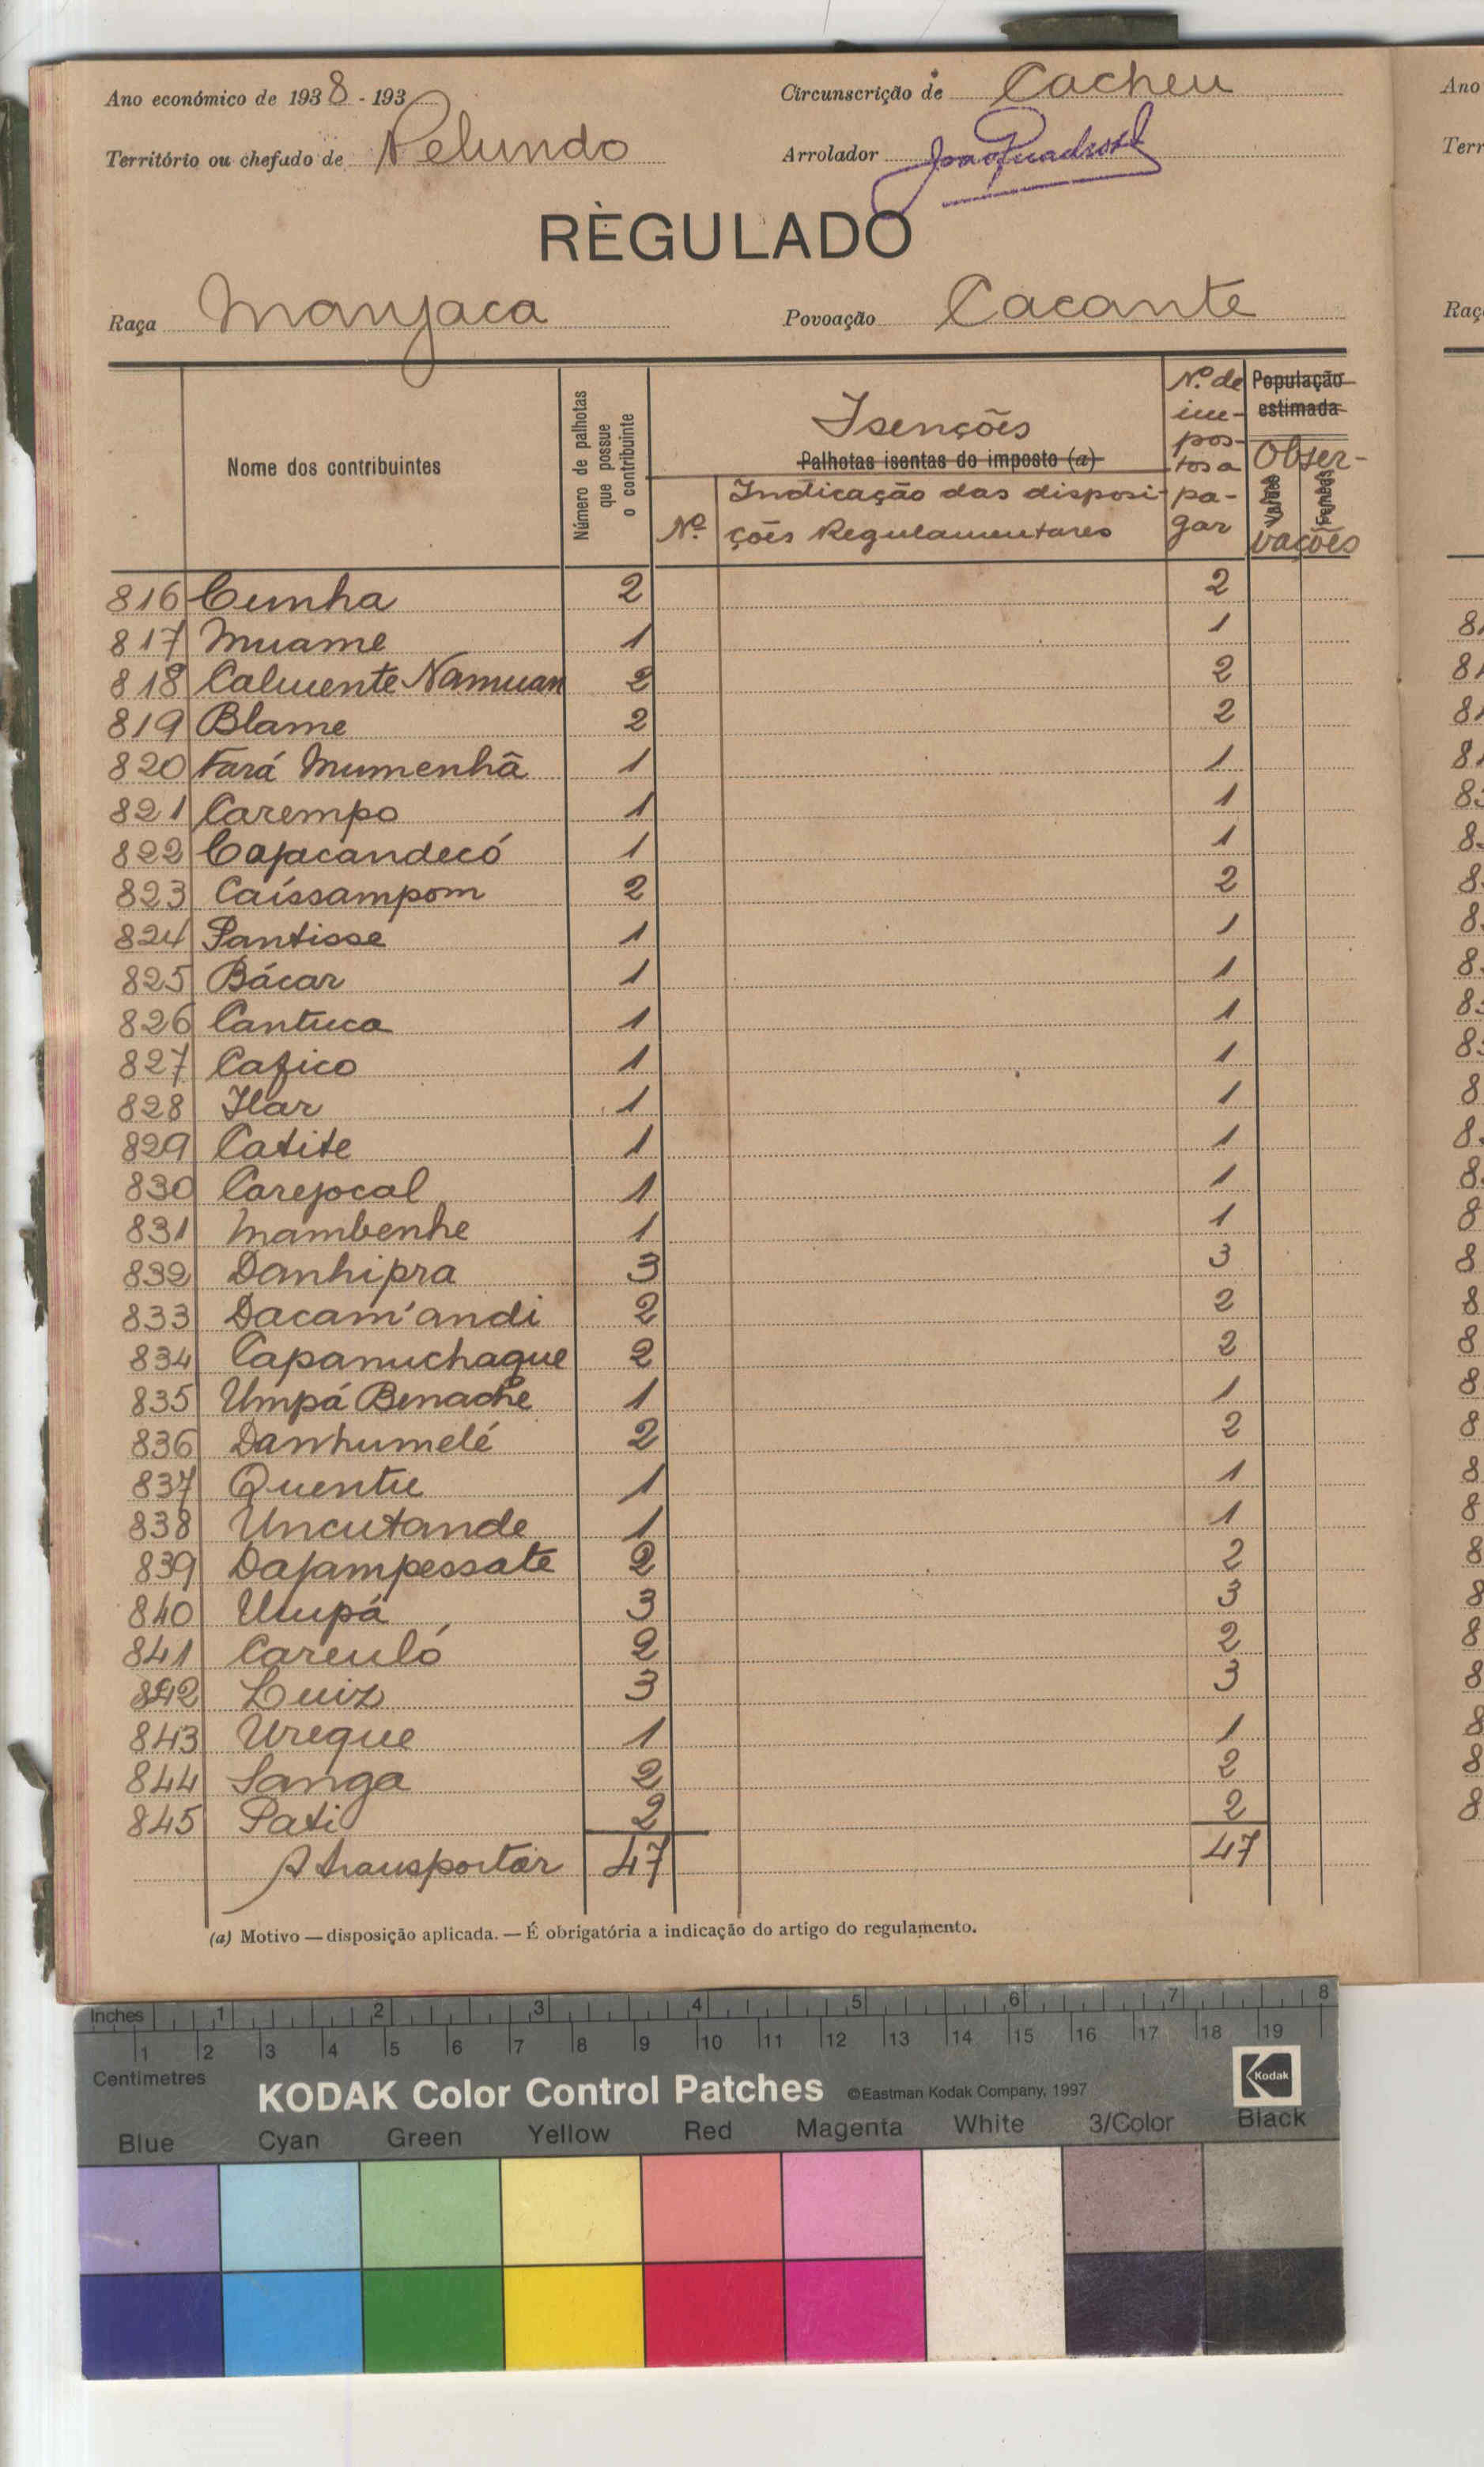 Ano económico de 1938 - 193
Circunscrição de Cacheu
Território ou chefado de Pelundo
Arrolador
REGULADO
Raça Manjaca
Povoação Cacante
Nome dos contribuintes
Número de palhotas que possue o contribuinte
Isenções
Palhotas isentas do imposto (a)
Nº
Indicação das disposi-
ções Regulamentares
Nº de im-pos-tos a pa-gar
População estimada
Obser-vações
816 Cunha 2 2
817 Muame 1 1
818 Caluente Namuan 2 2
819 Blame 2 2
820 Fará Mumenhã 1 1
821 Carempo 1 1
822 Cajacandecó 1 1
823 Caíssampom 2 2
824 Pantisse 1 1
825 Bácar 1 1
826 Cantuca 1 1
827 Cafico 1 1
828 Ilar 1 1
829 Catite 1 1
830 Carejocal 1 1
831 Mambenhe 1 1
832 Danhipra 3 3
833 Dacam'andi 2 2
834 Capanuchaque 2 2
835 Umpá Benache 1 1
836 Danhumelé 2 2
837 Quentu 1 1
838 Uncutande 1 1
839 Dajampessate 2 2
840 Umpá 3 3
841 Careuló 2 2
842 Luiz 3 3
843 Ureque 1 1
844 Sanga 2 2
845 Pati 2 2
A transportar 47 47
(a) Motivo — disposição aplicada. — É obrigatória a indicação do artigo do regulamento.
Inches 1 2 3 4 5 6 7 8
1 2 3 4 5 6 7 8 9 10 11 12 13 14 15 16 17 18 19
Centimetres
KODAK Color Control Patches ©Eastman Kodak Company, 1997 Kodak
Blue Cyan Green Yellow Red Magenta White 3/Color Black